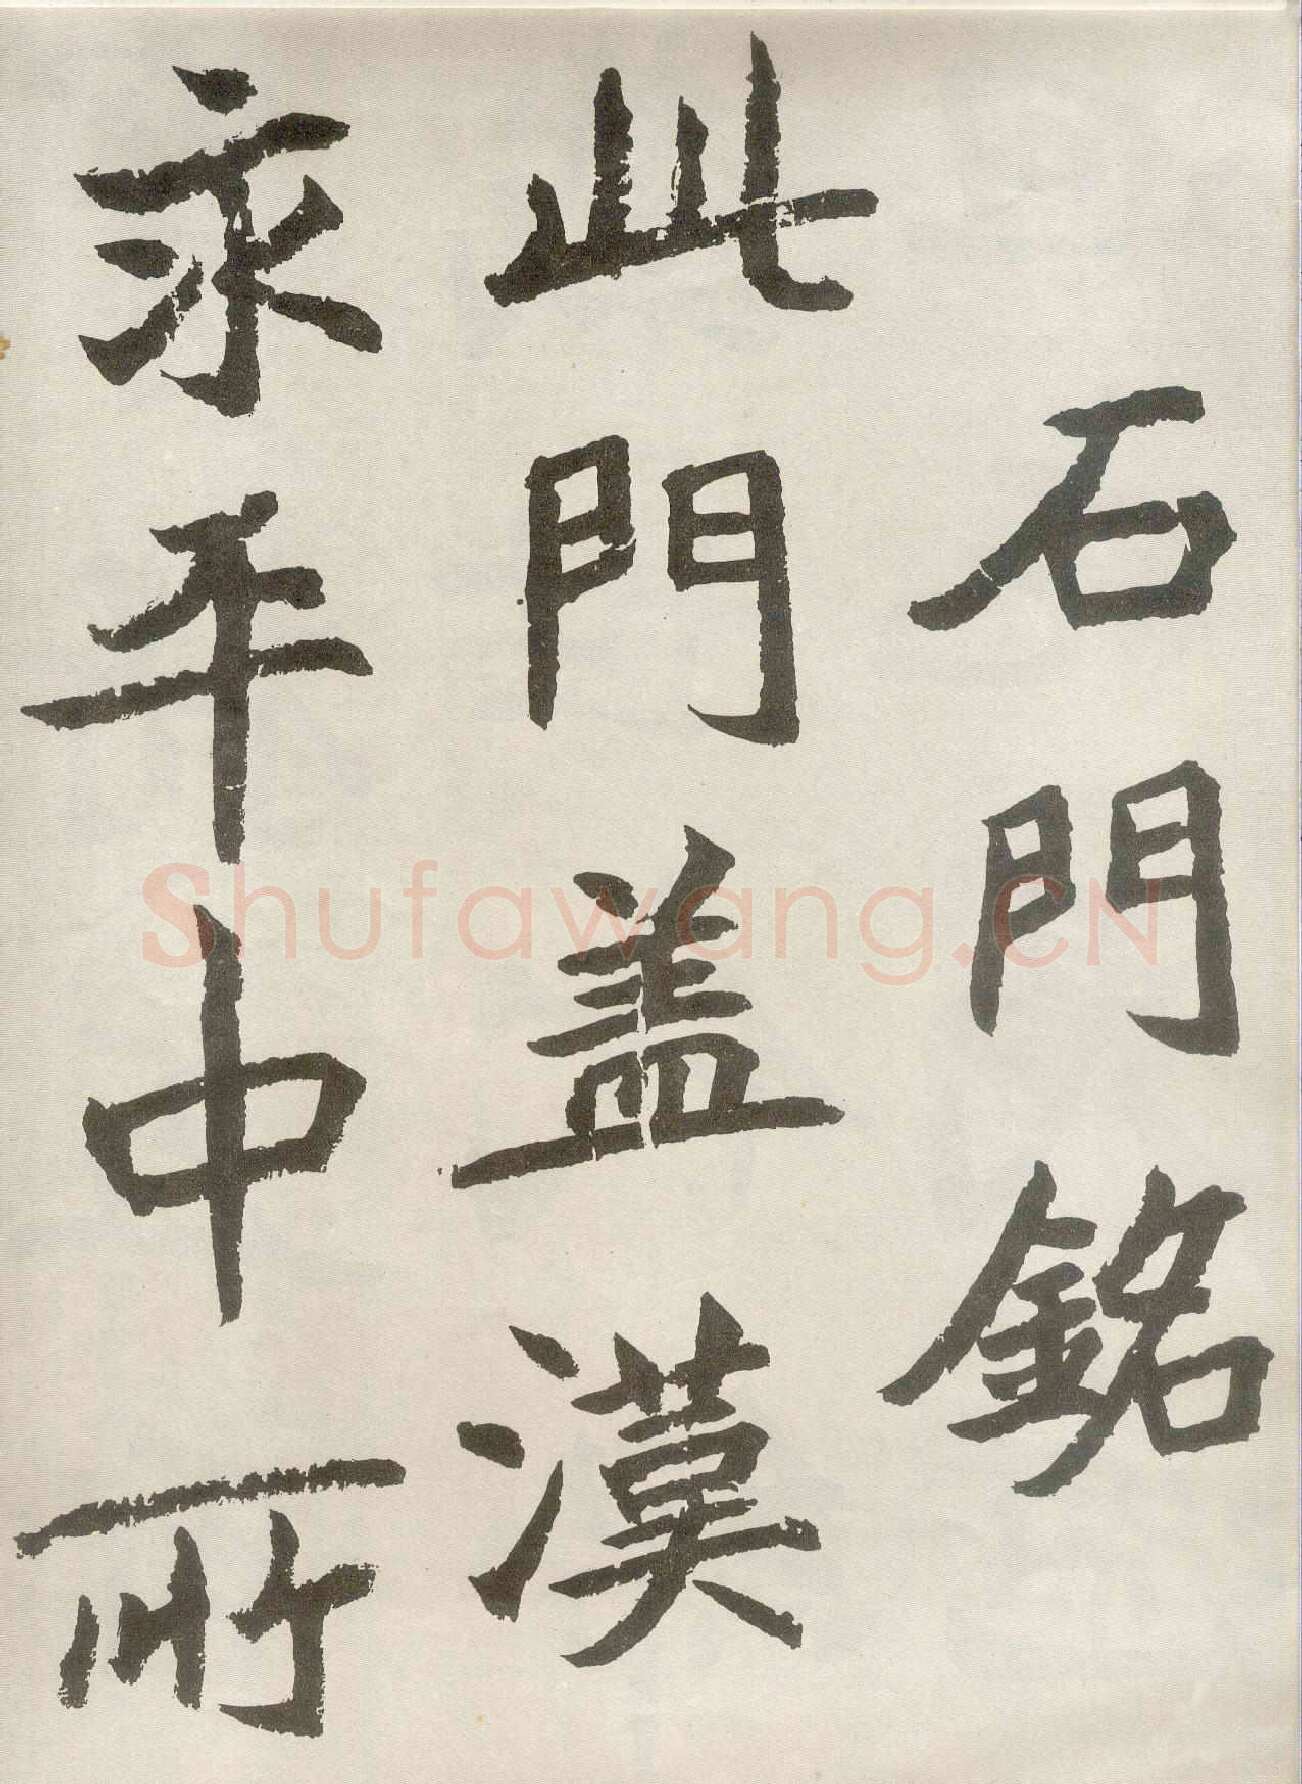 石門銘
此門盖漢
永平中所
Shufawang.CN